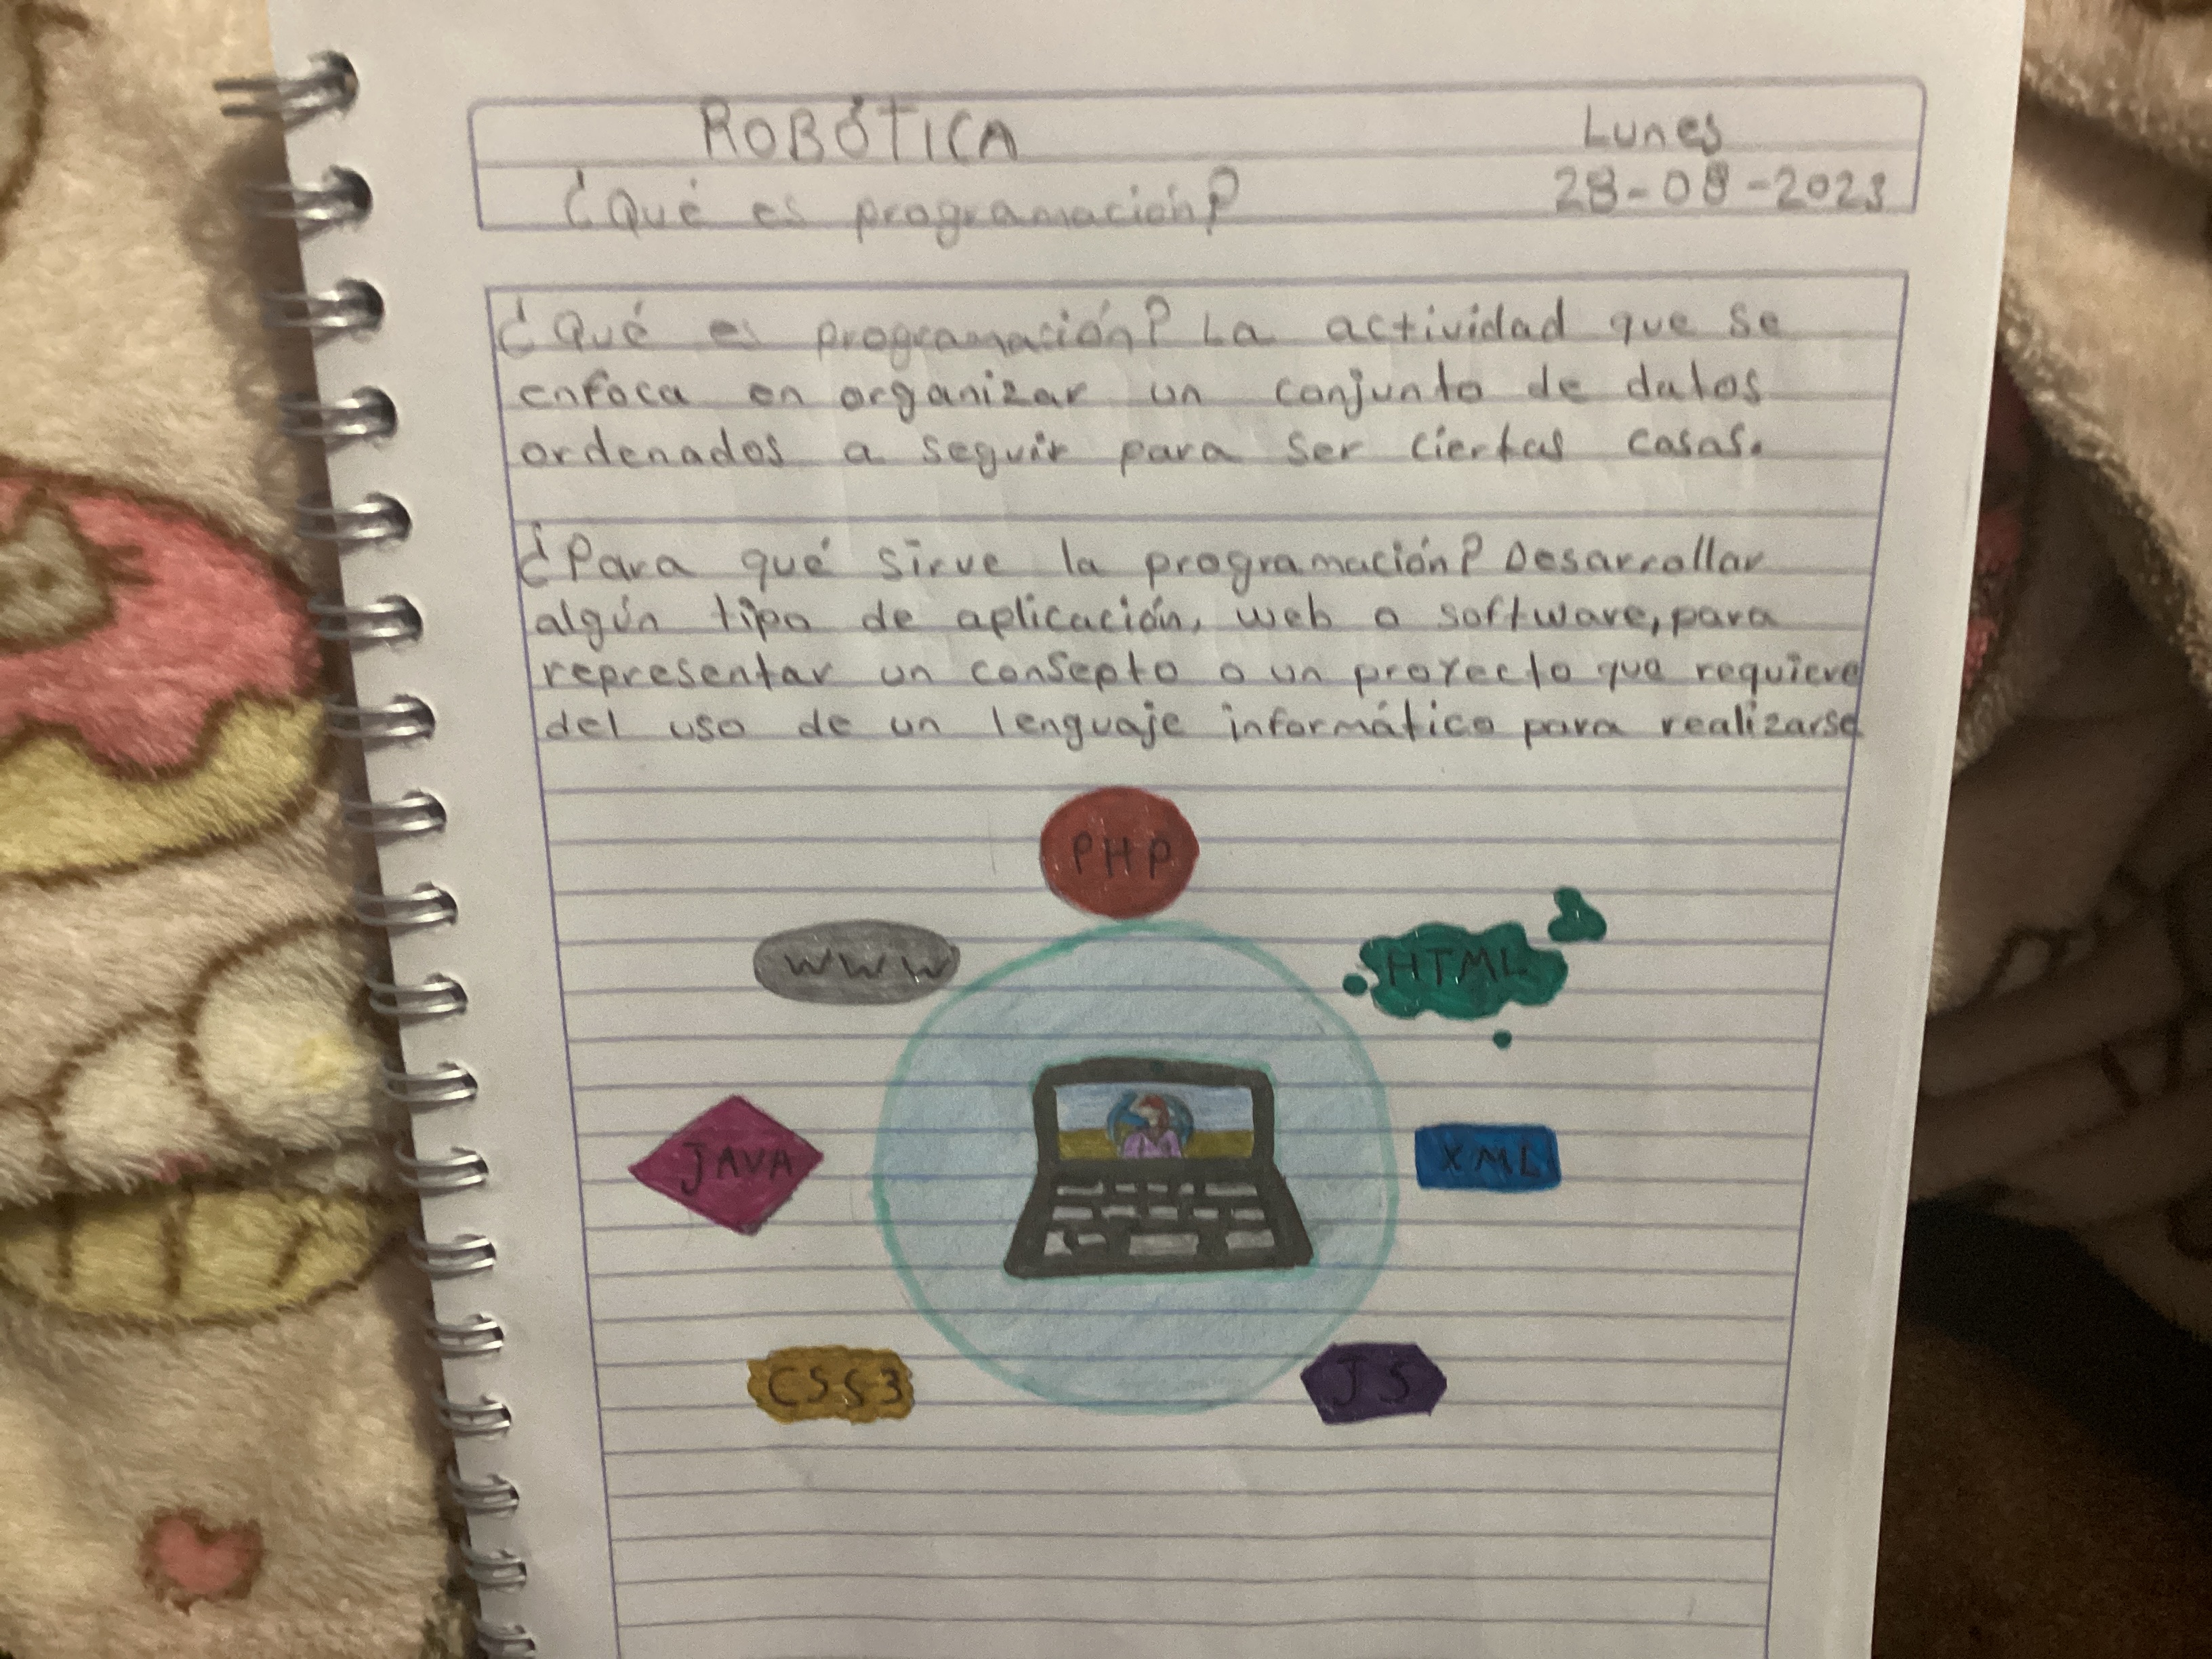 ROBÓTICA Lunes
¿Qué es programación? 28-08-2023
¿Qué es programación? La actividad que se
enfoca en organizar un conjunto de datos
ordenados a seguir para ser ciertas casas.
¿Para qué sirve la programación? Desarrollar
algún tipo de aplicación, web o software, para
representar un consepto o un proyecto que requiere
del uso de un lenguaje informático para realizarse
PHP
WWW
HTML
JAVA
XML
CSS3
JS